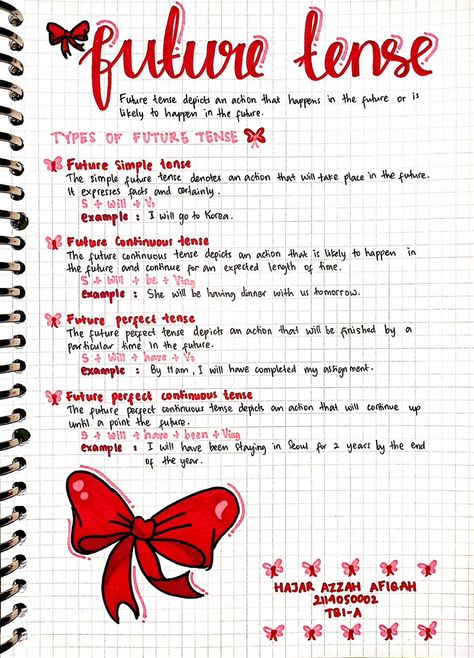 future tense
Future tense depicts an action that happens in the future or is
likely to happen in the future.
TYPES OF FUTURE TENSE
Future Simple tense
The simple future tense denotes an action that will take place in the future.
It expresses facts and certainly.
S + will + V₁
Example : I will go to Korea.
Future Continuous tense
The future continuous tense depicts an action that is likely to happen in
the future and continue for an expected length of time.
S + will + be + Ving
Example : She will be having dinner with us tomorrow.
Future perfect tense
The future perfect tense depicts an action that will be finished by a
particular time in the future.
S + will + have + V₃
Example : By 11am, I will have completed my assignment.
Future perfect continuous tense
The future perfect continuous tense depicts an action that will continue up
until a point the future.
S + will + have + been + Ving
Example : I will have been staying in Seoul for 2 years by the end
of the year.
HAJAR AZZAH AFIQAH
2114050002
TBI-A